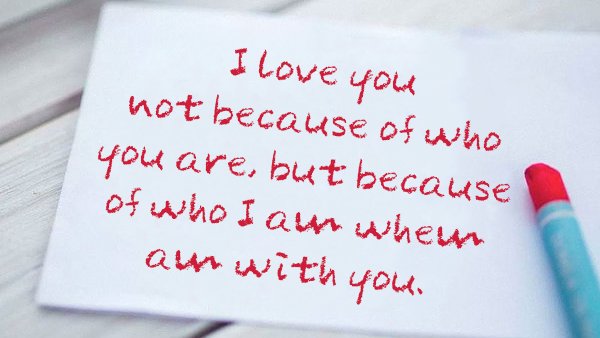 I love you
not because of who
you are, but because
of who I am whem
am with you.